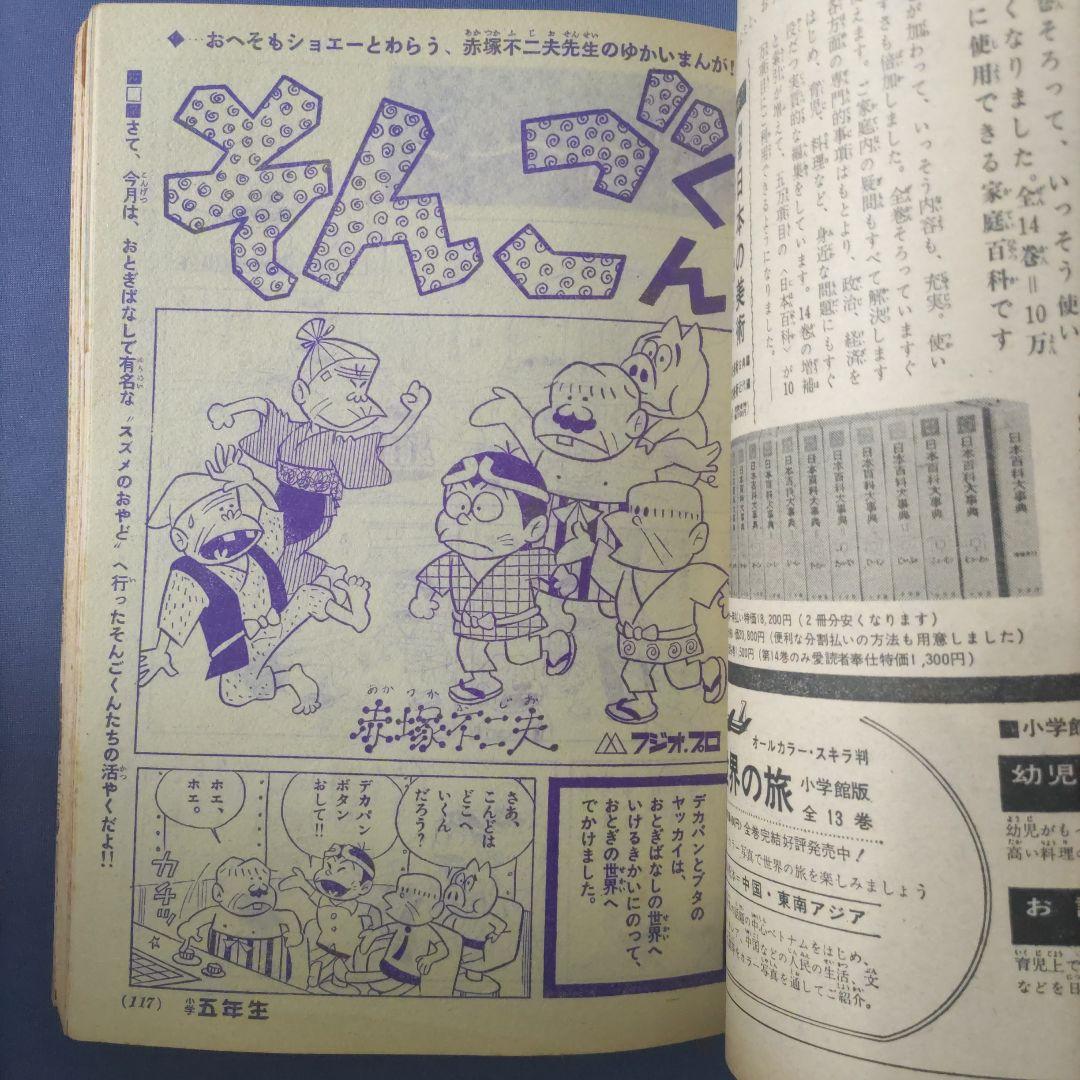 ◆…おへそもショエーとわらう、赤塚不二夫先生のゆかいまんが!
そんごくん
さて、今月は、おとぎばなしで有名な〝スズメのおやど〟へ行ったそんごくんたちの活やくだよ!!
赤塚不二夫
フジオ・プロ
デカパンとブタの
ヤッカイは、
おとぎばなしの世界へ
いけるきかいにのって、
おとぎの世界へ
でかけました。
さあ、
こんどは
どこへ
いくん
だろう?
デカパン
ボタン
おして!!
ホエ、
ホエ。
カチッ
(117)
小学五年生
そろって、いっそう使い
くなりました。全14巻=10万
に使用できる家庭百科です
が加わって、いっそう内容も、充実。使い
すさも倍加しました。全巻そろっていますぐ
えます。ご家庭内の疑問もすべて解決します
各方面の専門的事項はもとより、政治、経済を
はじめ、育児、料理など、身近な問題にもすぐ
役だつ実質的な編集をしています。14巻の増補
日本の美術
日本百科大事典
特価18,200円(2冊分安くなります)
(便利な分割払いの方法も用意しました)
(第14巻のみ愛読者奉仕特価1,300円)
オールカラー・スキラ判
世界の旅
小学館版
全13巻
全巻完結好評発売中!
カラー写真で世界の旅を楽しみましょう
中国・東南アジア
中心ベトナムをはじめ、
中国などの人民の生活、文
カラー写真を通してご紹介。
小学館
幼児
幼児がも
高い料理
お
育児上で
などを